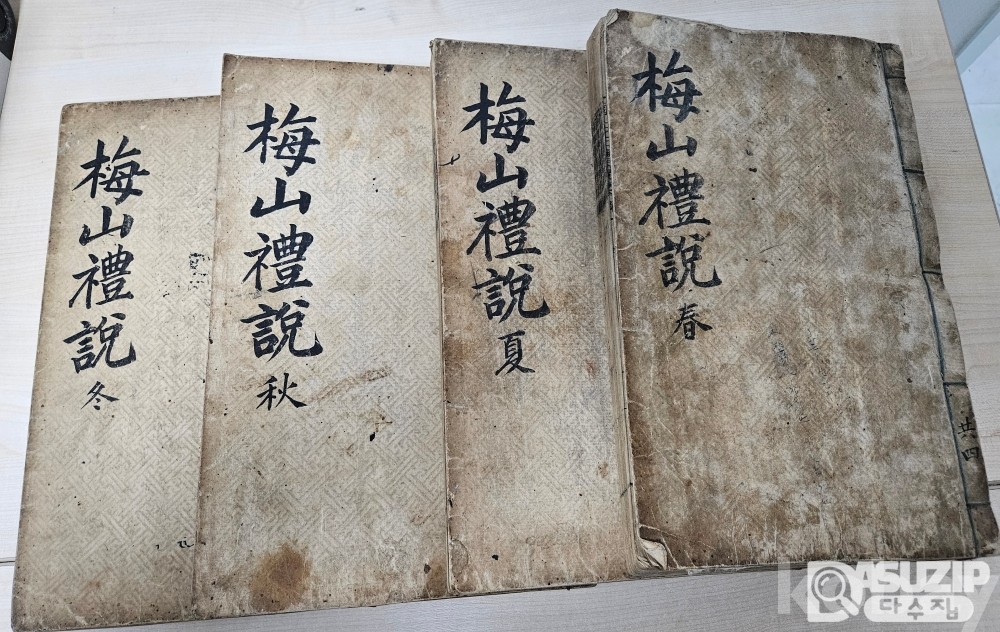 梅山禮說 春
共四
梅山禮說 夏
梅山禮說 秋
梅山禮說 冬
ASUZIP
다수집